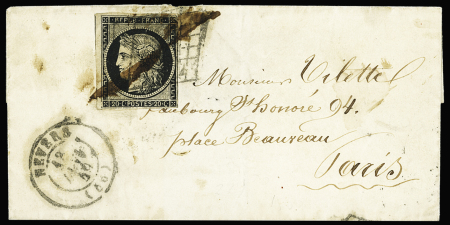 REPUB. FRANC.
20 C POSTES 20 C
Monsieur Vilette
faubourg St honoré 94.
place Beauveau
Paris
NEVERS
(56)